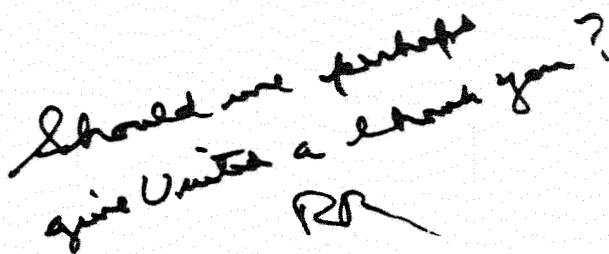 Should we perhaps
give United a thank you?
RR